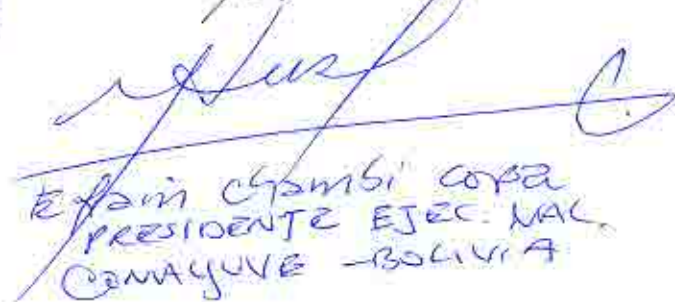 Efrain Chambi Copa
PRESIDENTE EJEC. NAL.
CONALJUVE - BOLIVIA